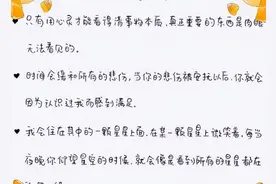 ♥ 只有用心灵才能看得清事物本质,真正重要的东西是肉眼
无法看见的.
♥ 时间会缓和所有的悲伤,当你的悲伤被安抚以后,你就会
因为认识过我而感到满足.
♥ 我会住在其中的一颗星星上面,在某一颗星星上微笑着,每当
夜晚你仰望星空的时候,就会像是看到所有的星星都在